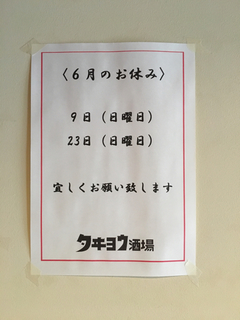 〈６月のお休み〉
９日（日曜日）
23日（日曜日）
宜しくお願い致します
タキヨウ酒場